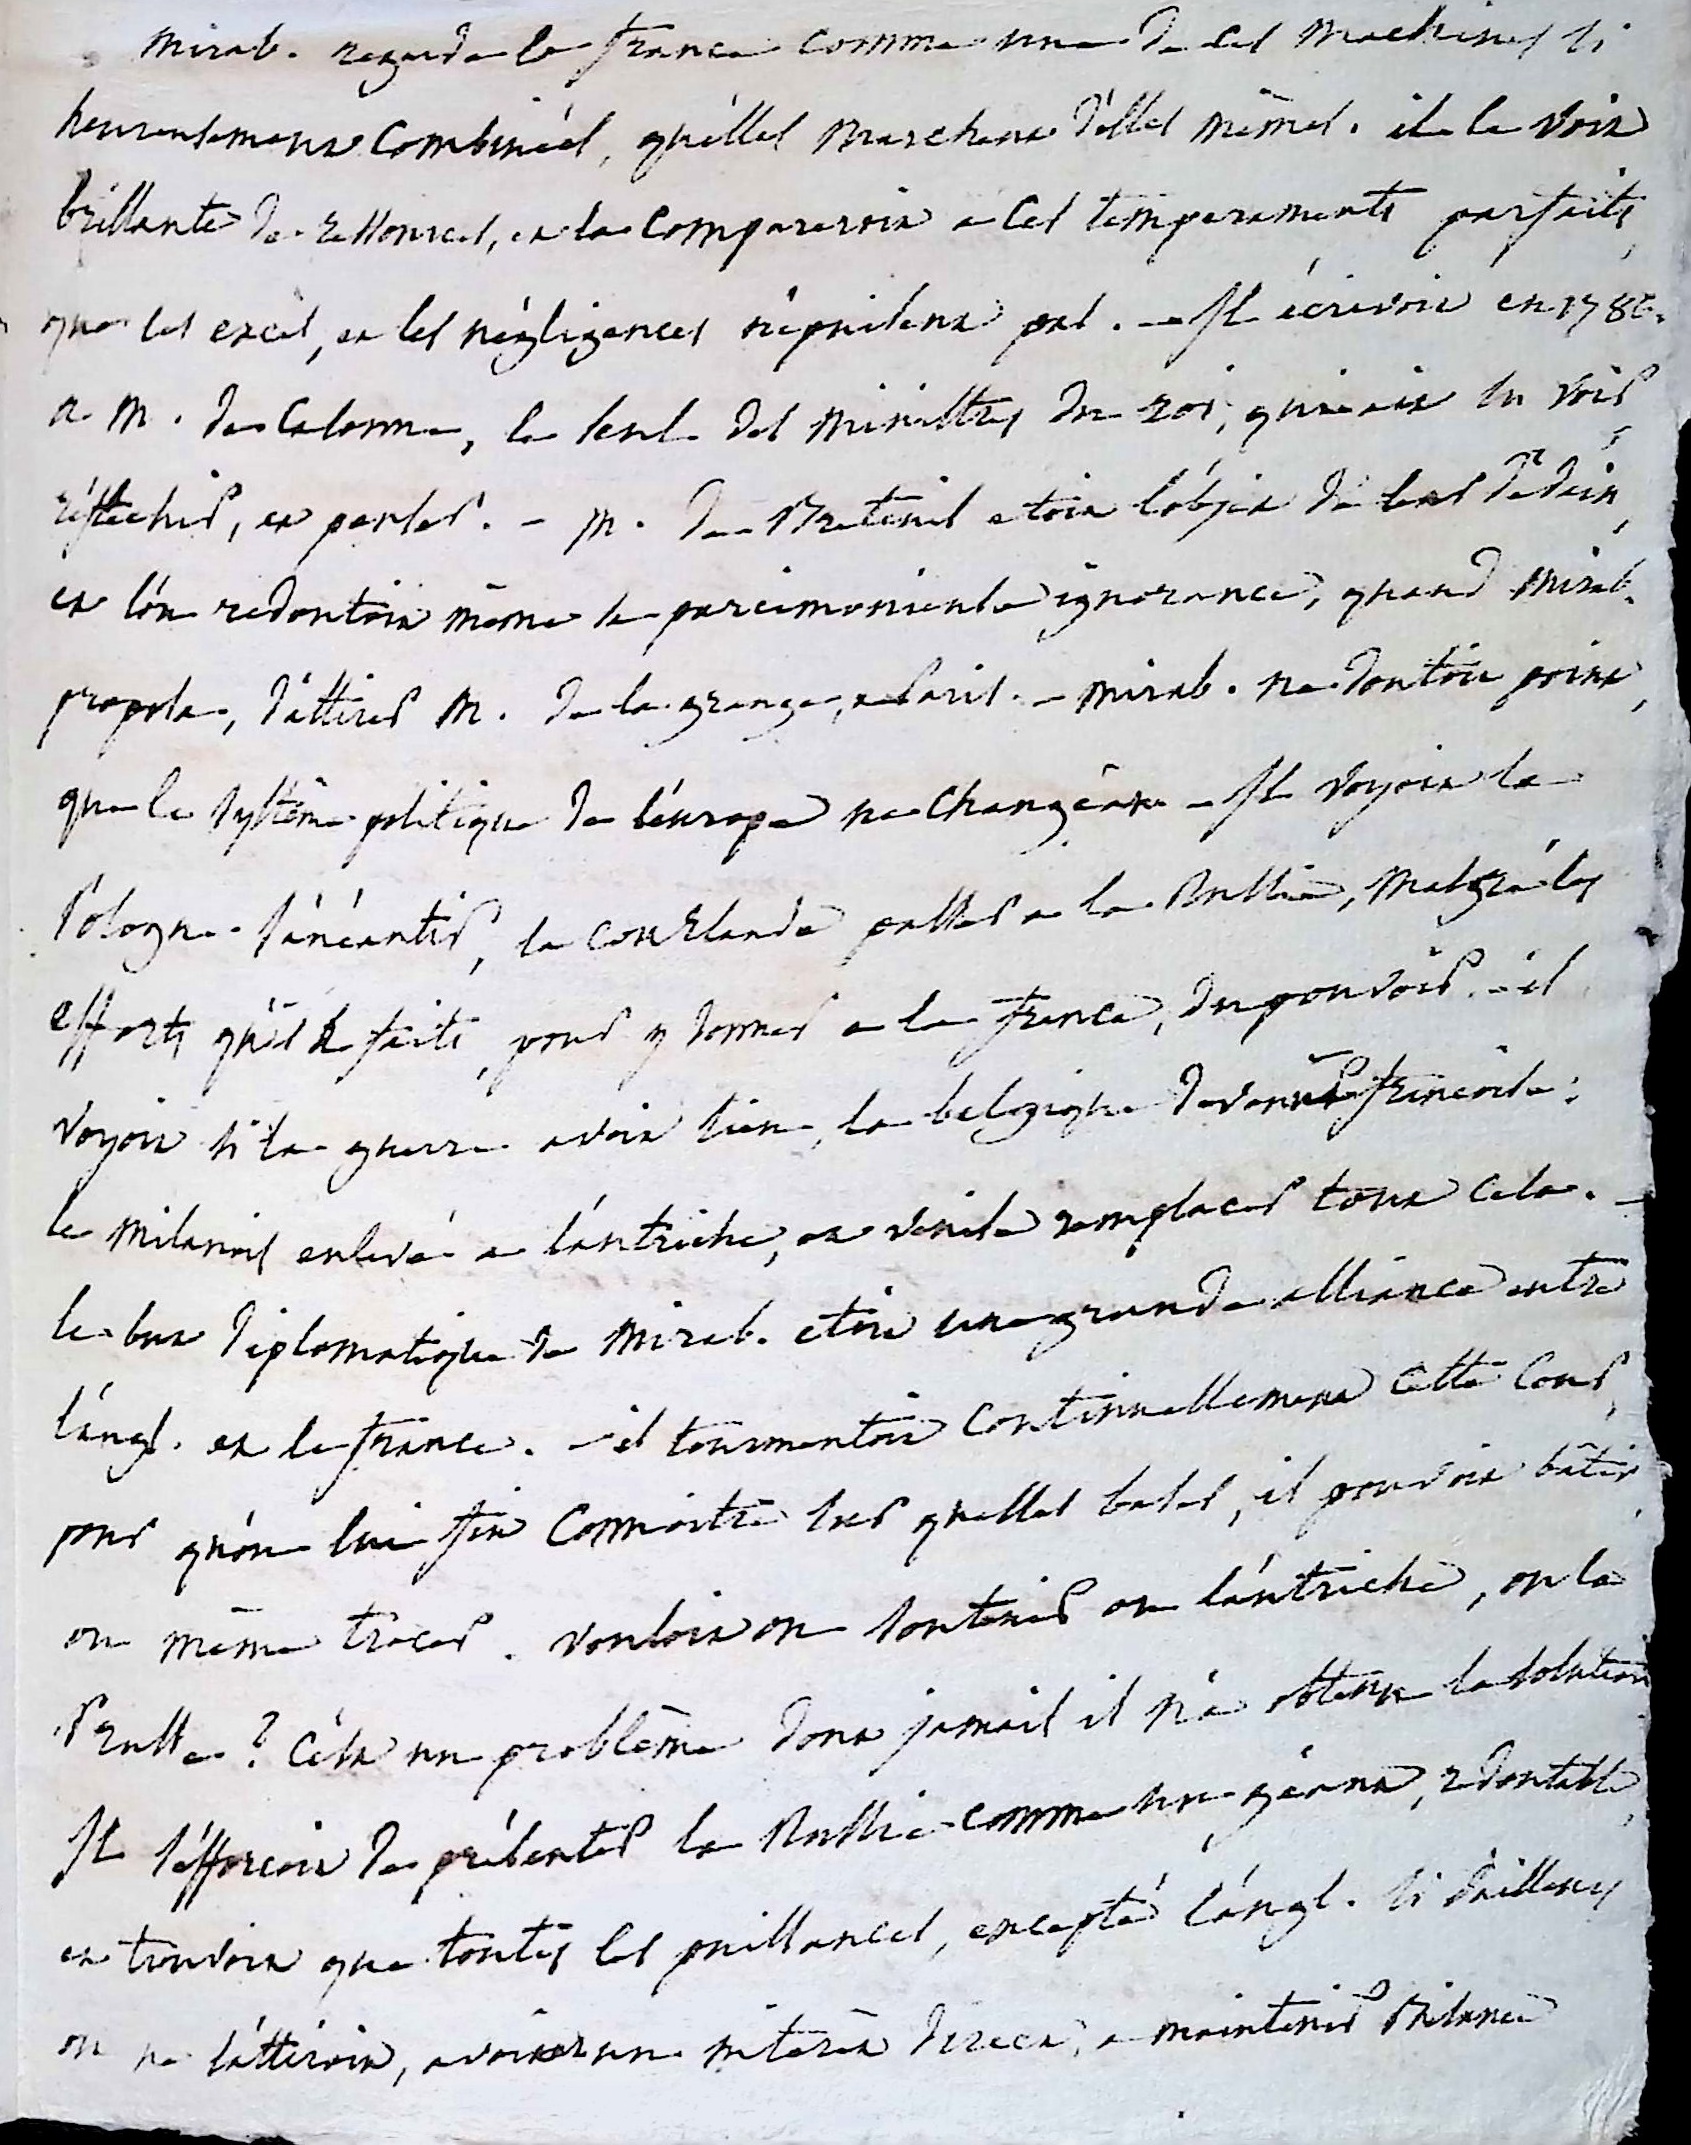 Mirab. regarde la france comme une de ces machines si
heureusement combinées, qu'elles marchent d'elles mêmes. il la voit
brillante de ressources, et la compareroit a ces temperaments parfaits,
que les excès, et les négligences n'épuisent pas. - Il écrivoit en 1786.
a M. de Calonne, le seul des ministres du roi, qui ait su voir
réfléchir, et parler. - M. de Breteuil etoit l'objet de leur dédain,
et l'on redoutoit même sa parcimonieuse ignorance, quand Mirab.
proposa, d'attirer M. de la grange, a Paris. - Mirab. ne doutoit point,
que le système politique de l'europe ne changeât - Il voyoit la
Pologne s'anéantir, la Courlande passer a la Russie, malgré les
efforts qu'il a faits, pour y donner a la france, du pouvoir. - il
voyoit si la guerre avoit lieu, la belgique devenir françoise.
le Milanois enlevé a l'autriche, et venise remplacer tout cela. -
le but diplomatique de Mirab. etoit une grande alliance entre
l'angl. et la france. - il tourmentoit continuellement cette Cour,
pour qu'on lui fit connoître sur quelles bases, il pouvoit bâtir
ou même tracer. vouloit on soutenir ou l'autriche, ou la
Prusse ? C'est un problême dont jamais il n'a obtenu la solution
Il s'éfforçoit de présenter la Russie comme un géant, redoutable,
et trouvoit que toutes les puissances, excepté l'angl. si d'ailleurs
on ne l'attiroit, avoient un intérêt direct, a maintenir